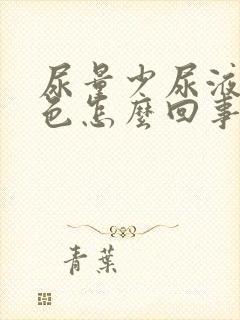 尿量少尿液
色怎麼回事
青葉